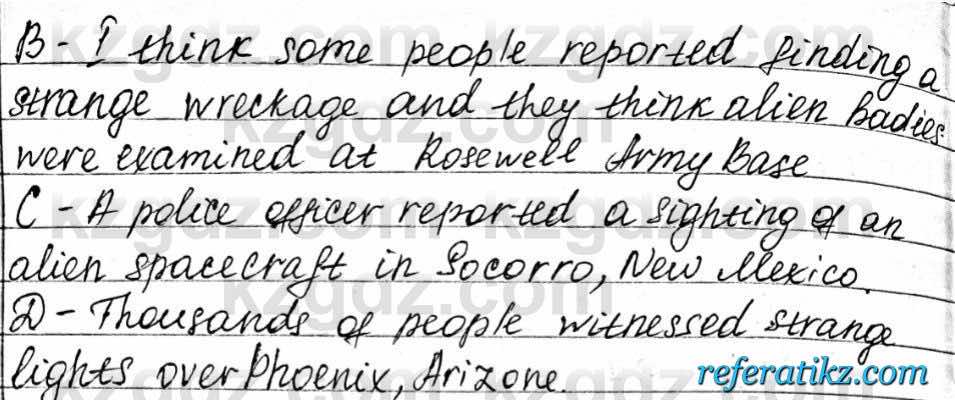 B - I think some people reported finding a
strange wreckage and they think alien badies
were examined at Rosewell Army Base
C - A police officer reported a sighting of an
alien spacecraft in Socorro, New Mexico.
D - Thousands of people witnessed strange
lights over Phoenix, Arizone.
referatikz.com
kzgdz.com